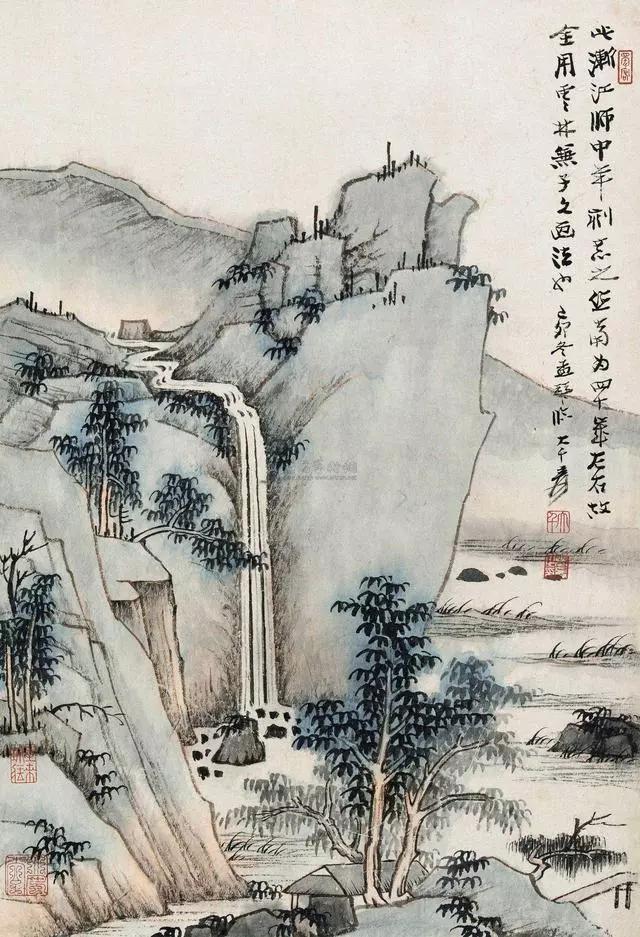 此漸江师中年刻意之作 为四十歲左右故
全用雲林無子久画法也 己卯冬孟 臨 大千爰